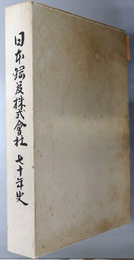 日本株式會社 七十年史